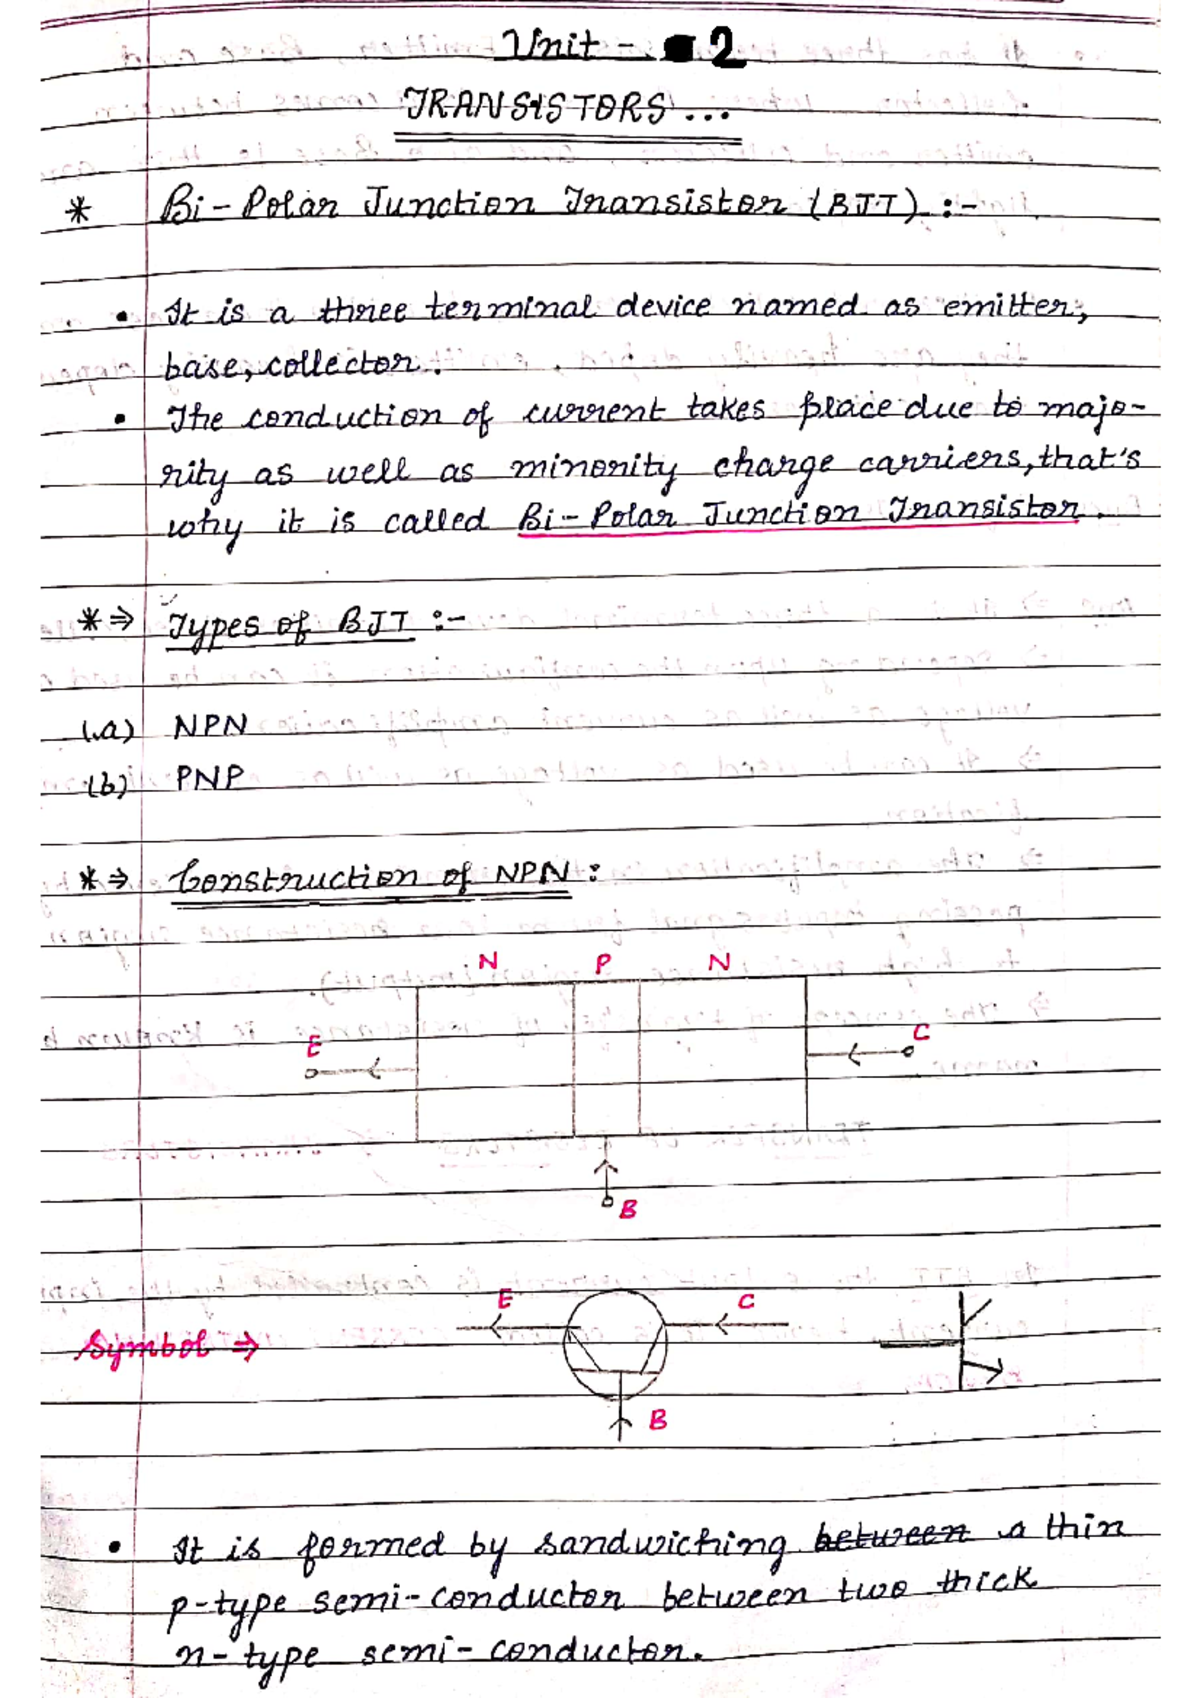 Unit - 2
TRANSISTORS ...
* Bi-Polar Junction Transistor (BJT) :-
• It is a three terminal device named as emitter,
base, collector.
• The conduction of current takes place due to majo-
rity as well as minority charge carriers, that's
why it is called Bi-Polar Junction Transistor.
*⇒ Types of BJT :-
(a) NPN
(b) PNP
*⇒ Construction of NPN :
N P N
E C
B
E C
Symbol ⇒
B
• It is formed by sandwiching between a thin
p-type semi-conductor between two thick
n-type semi-conductor.